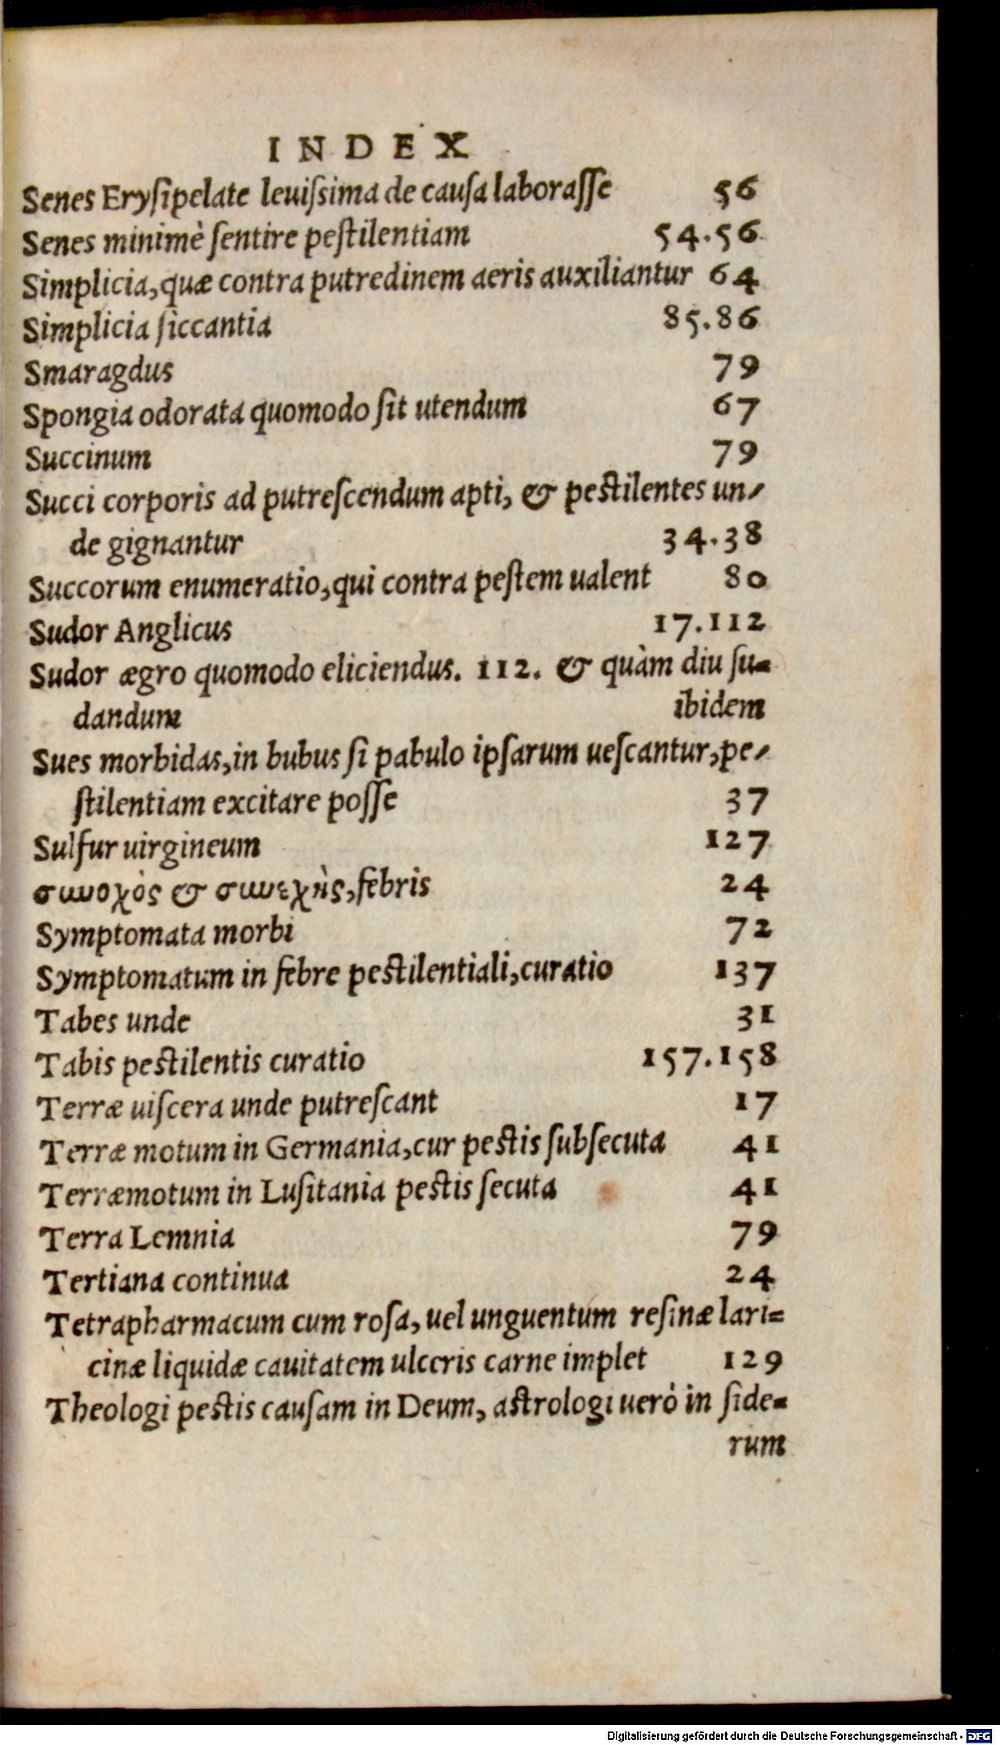 INDEX
Senes Erysipelate leuissima de causa laborasse 56
Senes minimè sentire pestilentiam 54.56
Simplicia, quæ contra putredinem aeris auxiliantur 64
Simplicia siccantia 85.86
Smaragdus 79
Spongia odorata quomodo sit utendum 67
Succinum 79
Succi corporis ad putrescendum apti, & pestilentes un-
de gignantur 34.38
Succorum enumeratio, qui contra pestem ualent 80
Sudor Anglicus 17.112
Sudor ægro quomodo eliciendus. 112. & quàm diu su-
dandum ibidem
Sues morbidas, in bubus si pabulo ipsarum uescantur, pe-
stilentiam excitare posse 37
Sulfur uirgineum 127
συνοχὸς & συνεχὴς, febris 24
Symptomata morbi 72
Symptomatum in febre pestilentiali, curatio 137
Tabes unde 31
Tabis pestilentis curatio 157.158
Terræ uiscera unde putrescant 17
Terræ motum in Germania, cur pestis subsecuta 41
Terræmotum in Lusitania pestis secuta 41
Terra Lemnia 79
Tertiana continua 24
Tetrapharmacum cum rosa, uel unguentum resinæ lari-
cinæ liquidæ cauitatem ulceris carne implet 129
Theologi pestis causam in Deum, astrologi uerò in side-
rum
Digitalisierung gefördert durch die Deutsche Forschungsgemeinschaft - DFG